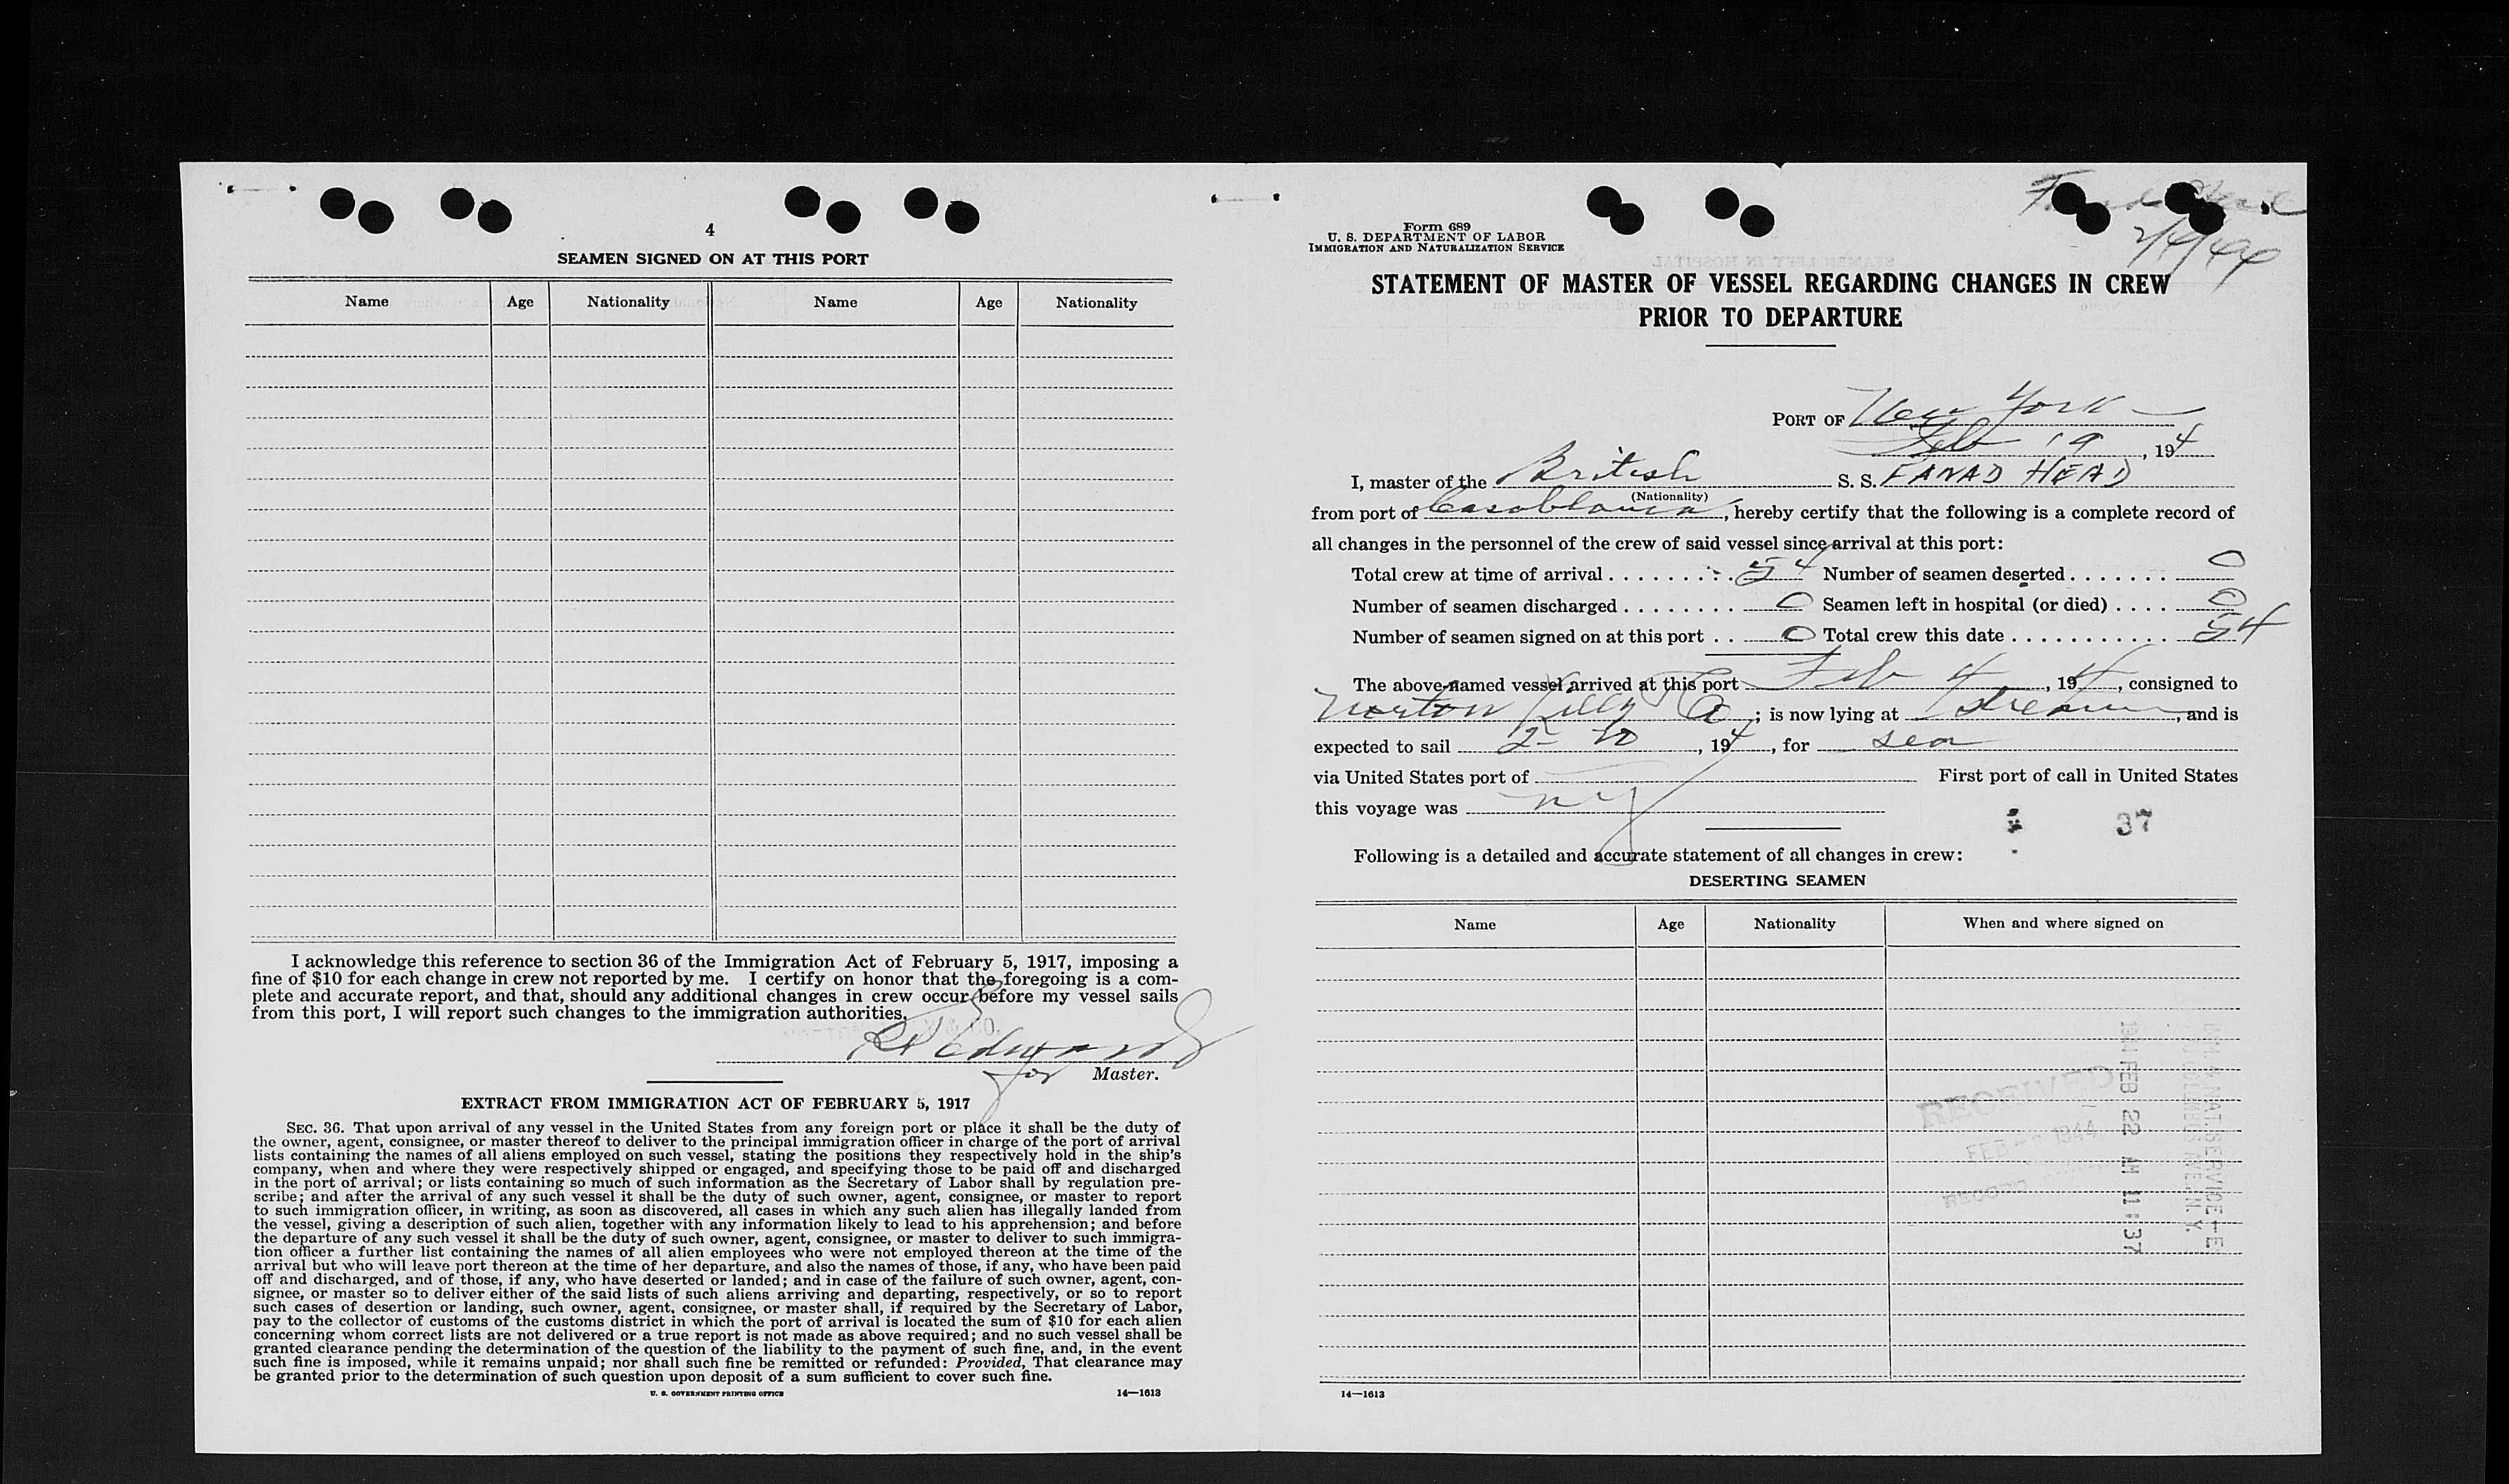 4
SEAMEN SIGNED ON AT THIS PORT
Name Age Nationality Name Age Nationality
I acknowledge this reference to section 36 of the Immigration Act of February 5, 1917, imposing a
fine of $10 for each change in crew not reported by me. I certify on honor that the foregoing is a com-
plete and accurate report, and that, should any additional changes in crew occur before my vessel sails
from this port, I will report such changes to the immigration authorities.
Edwards
for Master.
EXTRACT FROM IMMIGRATION ACT OF FEBRUARY 5, 1917
SEC. 36. That upon arrival of any vessel in the United States from any foreign port or place it shall be the duty of
the owner, agent, consignee, or master thereof to deliver to the principal immigration officer in charge of the port of arrival
lists containing the names of all aliens employed on such vessel, stating the positions they respectively hold in the ship's
company, when and where they were respectively shipped or engaged, and specifying those to be paid off and discharged
in the port of arrival; or lists containing so much of such information as the Secretary of Labor shall by regulation pre-
scribe; and after the arrival of any such vessel it shall be the duty of such owner, agent, consignee, or master to report
to such immigration officer, in writing, as soon as discovered, all cases in which any such alien has illegally landed from
the vessel, giving a description of such alien, together with any information likely to lead to his apprehension; and before
the departure of any such vessel it shall be the duty of such owner, agent, consignee, or master to deliver to such immigra-
tion officer a further list containing the names of all alien employees who were not employed thereon at the time of the
arrival but who will leave port thereon at the time of her departure, and also the names of those, if any, who have been paid
off and discharged, and of those, if any, who have deserted or landed; and in case of the failure of such owner, agent, con-
signee, or master so to deliver either of the said lists of such aliens arriving and departing, respectively, or so to report
such cases of desertion or landing, such owner, agent, consignee, or master shall, if required by the Secretary of Labor,
pay to the collector of customs of the customs district in which the port of arrival is located the sum of $10 for each alien
concerning whom correct lists are not delivered or a true report is not made as above required; and no such vessel shall be
granted clearance pending the determination of the question of the liability to the payment of such fine, and, in the event
such fine is imposed, while it remains unpaid; nor shall such fine be remitted or refunded: Provided, That clearance may
be granted prior to the determination of such question upon deposit of a sum sufficient to cover such fine.
U. S. GOVERNMENT PRINTING OFFICE 14—1613
2/4/44
Form 689
U. S. DEPARTMENT OF LABOR
IMMIGRATION AND NATURALIZATION SERVICE
STATEMENT OF MASTER OF VESSEL REGARDING CHANGES IN CREW
PRIOR TO DEPARTURE
PORT OF New York
Feb 19, 194
I, master of the British S. S. FANAD HEAD
(Nationality)
from port of Casablanca, hereby certify that the following is a complete record of
all changes in the personnel of the crew of said vessel since arrival at this port:
Total crew at time of arrival . . . . . . . . 54 Number of seamen deserted . . . . . . . 0
Number of seamen discharged . . . . . . . . 0 Seamen left in hospital (or died) . . . . 0
Number of seamen signed on at this port . . 0 Total crew this date . . . . . . . . . . . 54
The above-named vessel arrived at this port Feb 4, 194, consigned to
Norton Lilly & Co; is now lying at Stream, and is
expected to sail 2-20, 194, for sea
via United States port of First port of call in United States
this voyage was ny
37
Following is a detailed and accurate statement of all changes in crew:
DESERTING SEAMEN
Name Age Nationality When and where signed on
RECEIVED
FEB 1944
RECORD
1944 FEB 22 AM 11:37
IMM. & NAT. SERVICE
COLUMBUS AVE. N.Y.
14—1613